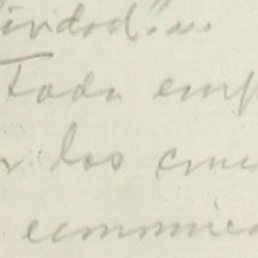 ividad"...
Toda emp
los cru
economica